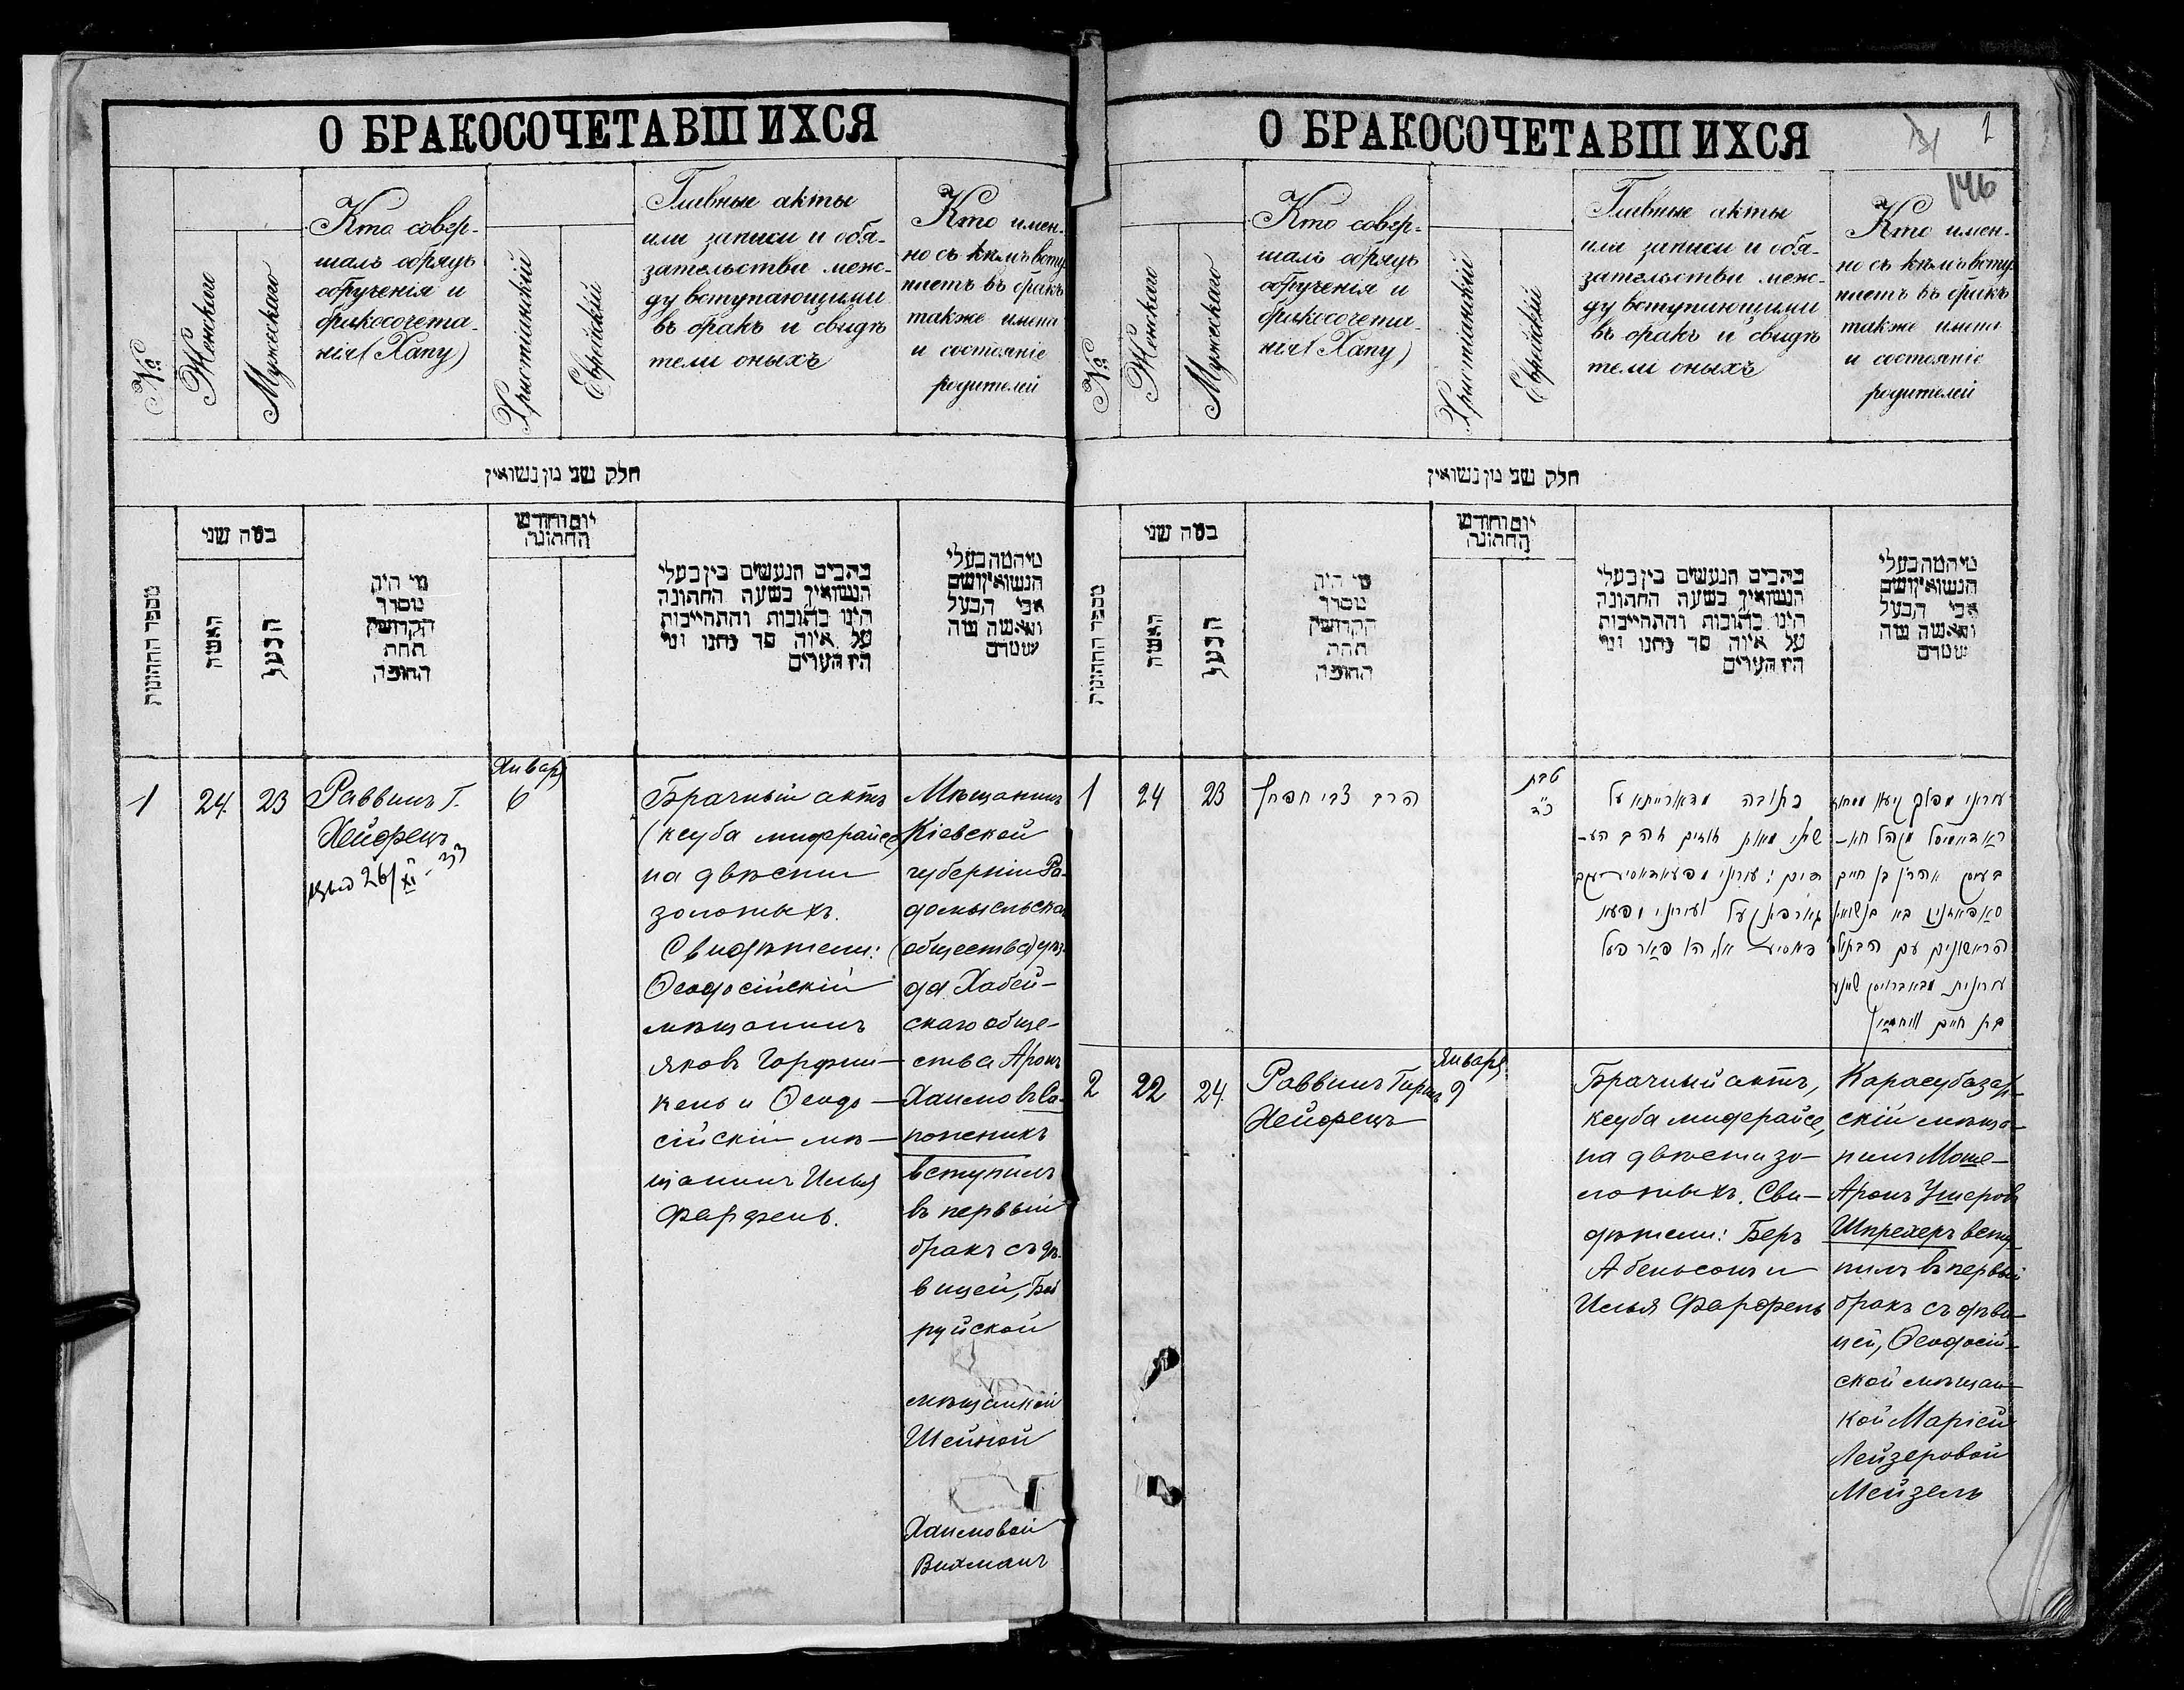 О БРАКОСОЧЕТАВШИХСЯ
№
Женскаго
Мужескаго
Кто совер-
шалъ обрядъ
обрученія и
бракосочета-
нія (Хапу)
Христіанскій
Еврейскій
Главные акты
или записи и обя-
зательства меж-
ду вступающими
въ бракъ и свидѣ
тели оныхъ
Кто имен-
но съ кѣмъ всту-
паетъ въ бракъ
также имена
и состояніе
родителей
חלק שני מן נשואין
מספר החתונות
כמה שני
האשה
הבעל
מי היה
מסדר
הקדושין
תחת
החופה
יום וחודש
החתונה
כתבים הנעשים בין בעלי
הנשואין בשעה החתונה
היינו כתובות והתחייבות
על איזה סך נתנו ומי
היו העדים
מי המה בעלי
הנשואין ושם
אבי הבעל
והאשה מה
שמם
1
24.
23
Раввинъ Г.
Хейфецъ
26/XI - 33
Январ
6
Брачный актъ
(ксуба мидерайсе)
на двѣсти
золотыхъ.
Свидѣтели:
Ѳеодосійскій
мѣщанинъ
Яковъ Горфин-
кель и Ѳеодо-
сійскій мѣ-
щанинъ Илья
Фарфель.
Мѣщанинъ
Кіевской
губерніи Ра-
домысльскаго
(общества) уѣз-
да Хабен-
скаго обще-
ства Аронъ
Хаимовъ Са-
поженикъ
вступилъ
въ первый
бракъ съ дѣ-
вицей, Боб
руйской
мѣщанкой
Шейной
Хаимовой
Вихманъ
О БРАКОСОЧЕТАВШИХСЯ
1
146
№
Женскаго
Мужескаго
Кто совер-
шалъ обрядъ
обрученія и
бракосочета-
нія (Хапу)
Христіанскій
Еврейскій
Главные акты
или записи и обя-
зательства меж-
ду вступающими
въ бракъ и свидѣ
тели оныхъ
Кто имен-
но съ кѣмъ всту-
паетъ въ бракъ
также имена
и состояніе
родителей
חלק שני מן נשואין
מספר החתונות
כמה שני
האשה
הבעל
מי היה
מסדר
הקדושין
תחת
החופה
יום וחודש
החתונה
כתבים הנעשים בין בעלי
הנשואין בשעה החתונה
היינו כתובות והתחייבות
על איזה סך נתנו ומי
היו העדים
מי המה בעלי
הנשואין ושם
אבי הבעל
והאשה מה
שמם
1
24
23
הרב צבי חפץ
טבת
כ״ד
כתובה מדארייתא על
שתי מאות זהובים
עירוני
אהרן בן חיים
בא בנשואין
הראשונים עם הבתולה
בת חיים וויחמאן
2
22
24.
Раввинъ Гиршъ
Хейфецъ
Января
9
Брачный актъ,
ксуба мидерайсе,
на двѣсти зо-
лотыхъ. Сви-
дѣтели: Беръ
Абельсонъ и
Илья Фарфель
Карасубазар-
скій мѣща-
нинъ Моше-
Аронъ Ушеровъ
Шпрехеръ всту
пилъ въ первый
бракъ съ дѣви-
цей, Ѳеодосій-
ской мѣщан-
кой Маріей
Лейзеровой
Мейзель